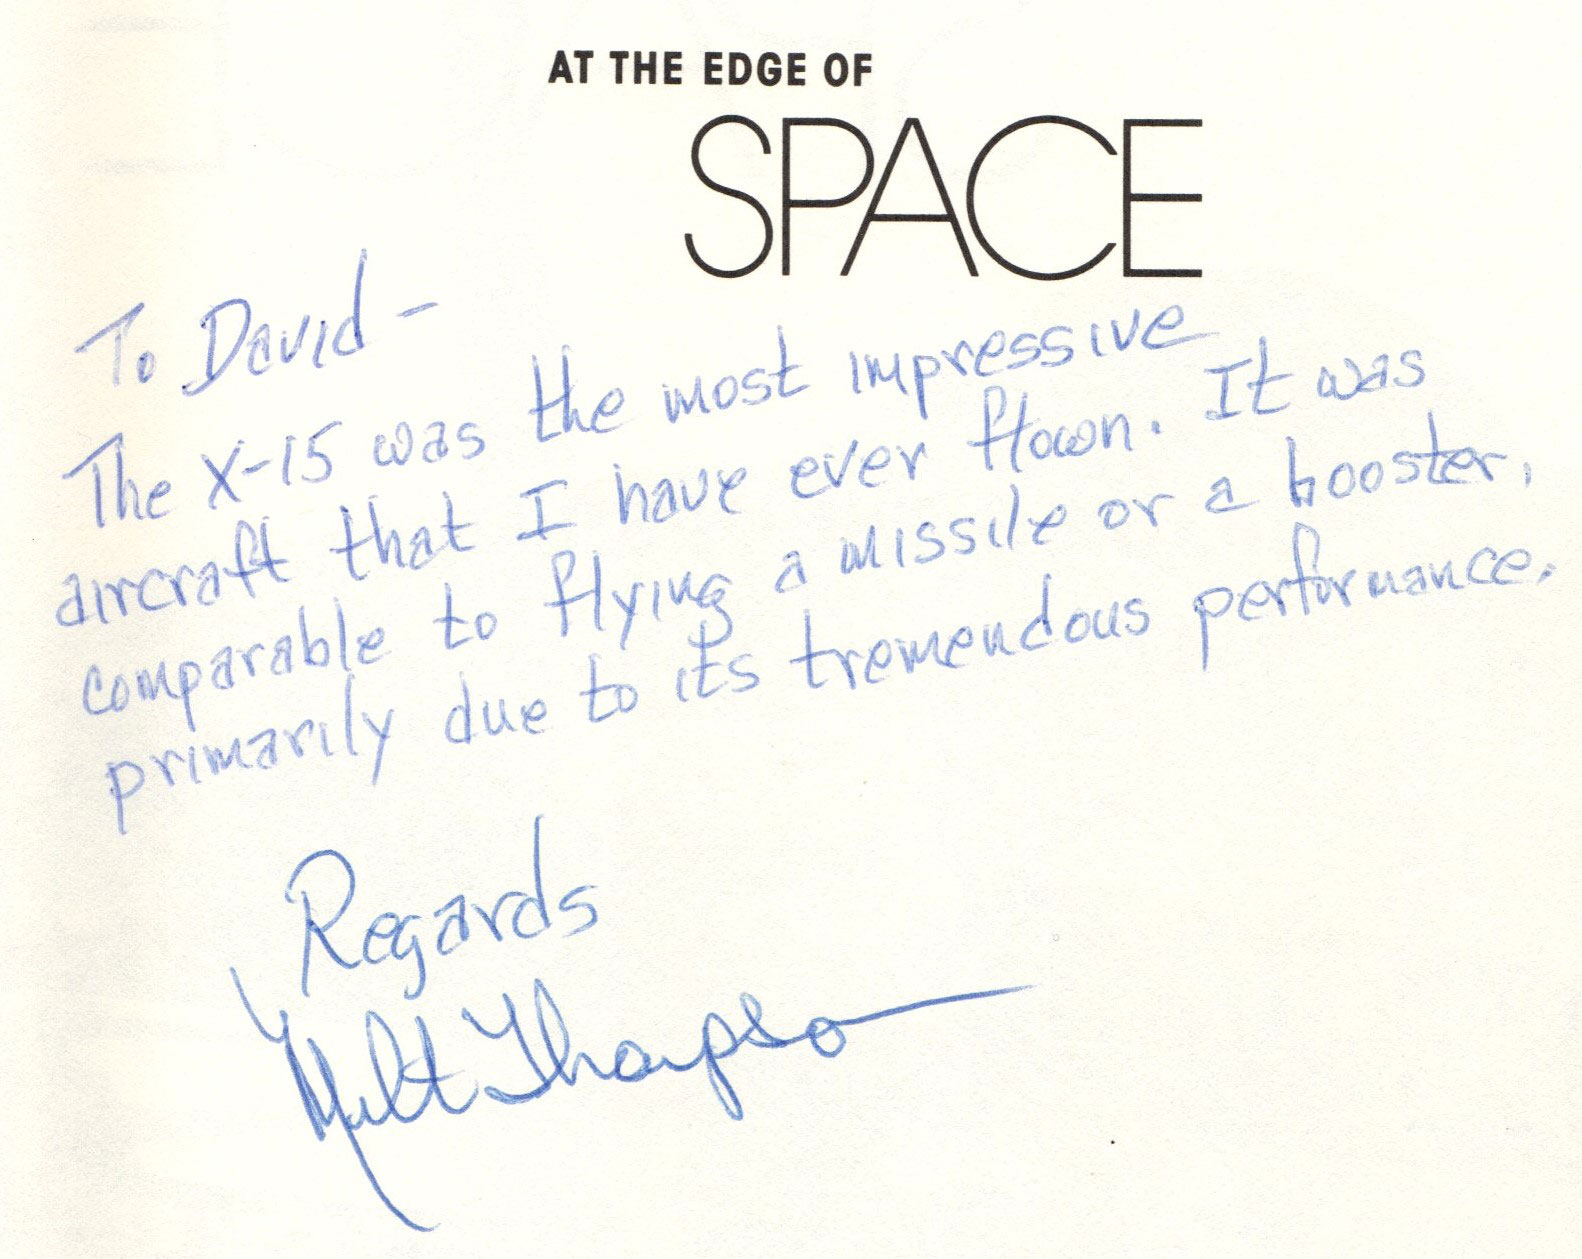 AT THE EDGE OF
SPACE
To David -
The X-15 was the most impressive
aircraft that I have ever flown. It was
comparable to flying a missile or a booster,
primarily due to its tremendous performance.
Regards
Milt Thompson